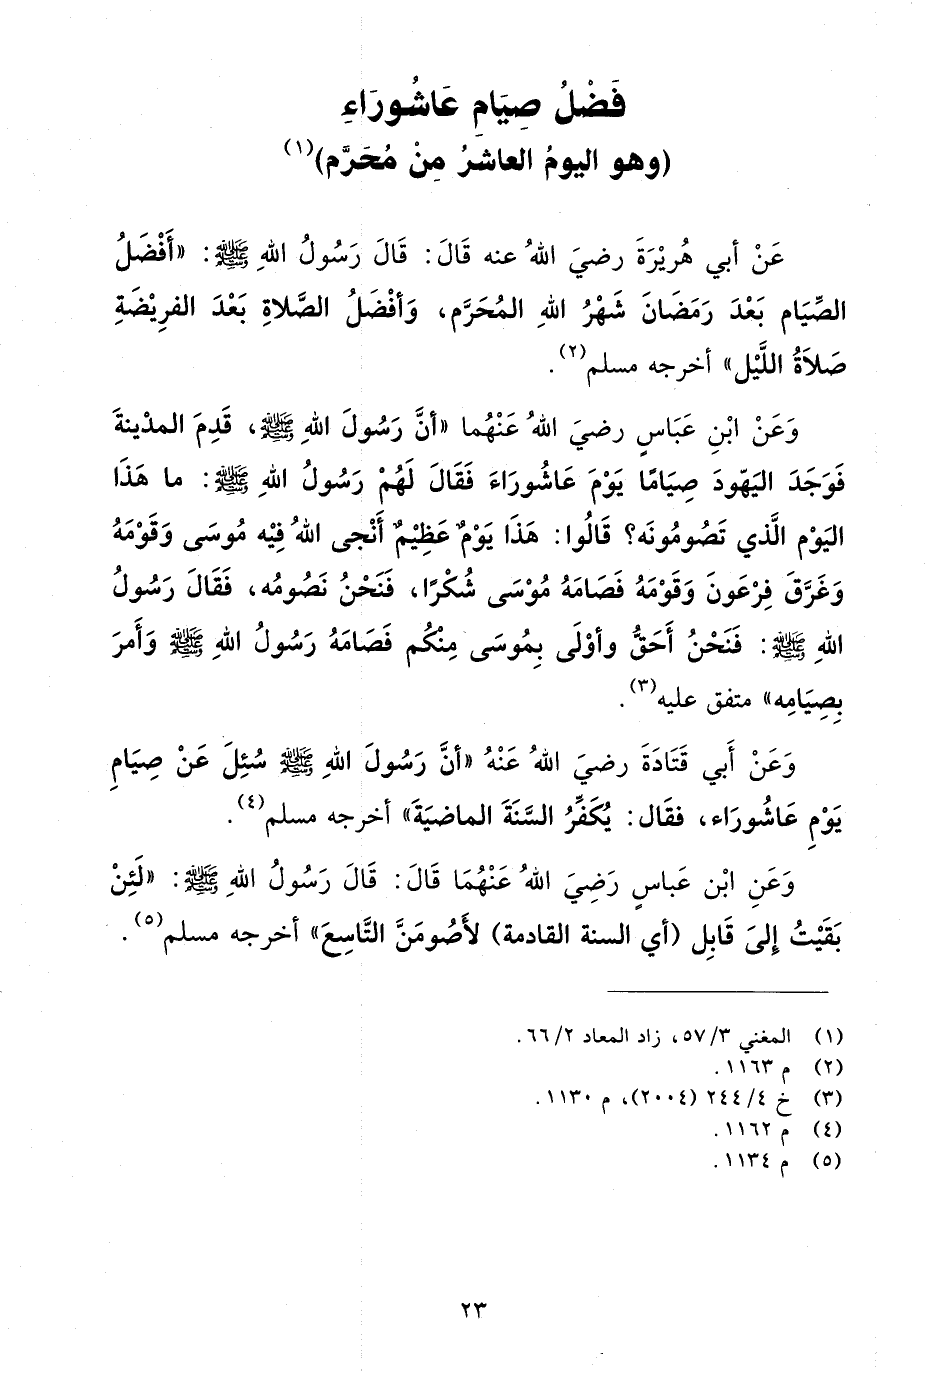 فَضْلُ صِيَامِ عَاشُورَاءِ
(وهو اليومُ العاشرُ مِنْ مُحَرَّم)(١)
عَنْ أبي هُرِيْرَةَ رضيَ اللهُ عنه قَالَ: قَالَ رَسُولُ اللهِ ﷺ: «أَفْضَلُ
الصِّيَام بَعْدَ رَمَضَانَ شَهْرُ اللهِ المُحَرَّم، وَأفْضَلُ الصَّلاةِ بَعْدَ الفرِيْضَةِ
صَلاَةُ اللَّيْل» أخرجه مسلم(٢).
وَعَنْ ابْنِ عَبَاسٍ رضيَ اللهُ عَنْهُما «أنَّ رَسُولَ اللهِ ﷺ، قَدِمَ المدْينةَ
فَوَجَدَ اليَهُودَ صِيَامًا يَوْمَ عَاشُورَاءَ فَقَالَ لَهُمْ رَسُولُ اللهِ ﷺ: ما هَذَا
اليَوْم الَّذي تَصُومُونَه؟ قَالُوا: هَذَا يَوْمٌ عَظِيْمٌ أَنْجى اللهُ فِيْه مُوسَى وَقَوْمَهُ
وَغَرَّقَ فِرْعَونَ وَقَوْمَهُ فَصَامَهُ مُوْسَى شُكْرًا، فَنَحْنُ نَصُومُه، فَقَالَ رَسُولُ
اللهِ ﷺ: فَنَحْنُ أَحَقُّ وأوْلَى بِمُوسَى مِنْكُم فَصَامَهُ رَسُولُ اللهِ ﷺ وَأَمرَ
بِصِيَامِه» متفق عليه(٣).
وَعَنْ أَبي قَتَادَةَ رضيَ اللهُ عَنْهُ «أنَّ رَسُولَ اللهِ ﷺ سُئِلَ عَنْ صِيَامِ
يَوْمِ عَاشُورَاء، فقَال: يُكَفِّرُ السَّنَةَ الماضيَةَ» أخرجه مسلم(٤).
وَعَنِ ابْن عَباسٍ رَضِيَ اللهُ عَنْهُمَا قَالَ: قَالَ رَسُولُ اللهِ ﷺ: «لَئِنْ
بَقَيْتُ إلىَ قَابِل (أي السنة القادمة) لأَصُومَنَّ التَّاسِعَ» أخرجه مسلم(٥).
(١) المغني ٣/ ٥٧، زاد المعاد ٢/ ٦٦.
(٢) م ١١٦٣.
(٣) خ ٤/ ٢٤٤ (٢٠٠٤)، م ١١٣٠.
(٤) م ١١٦٢.
(٥) م ١١٣٤.
٢٣